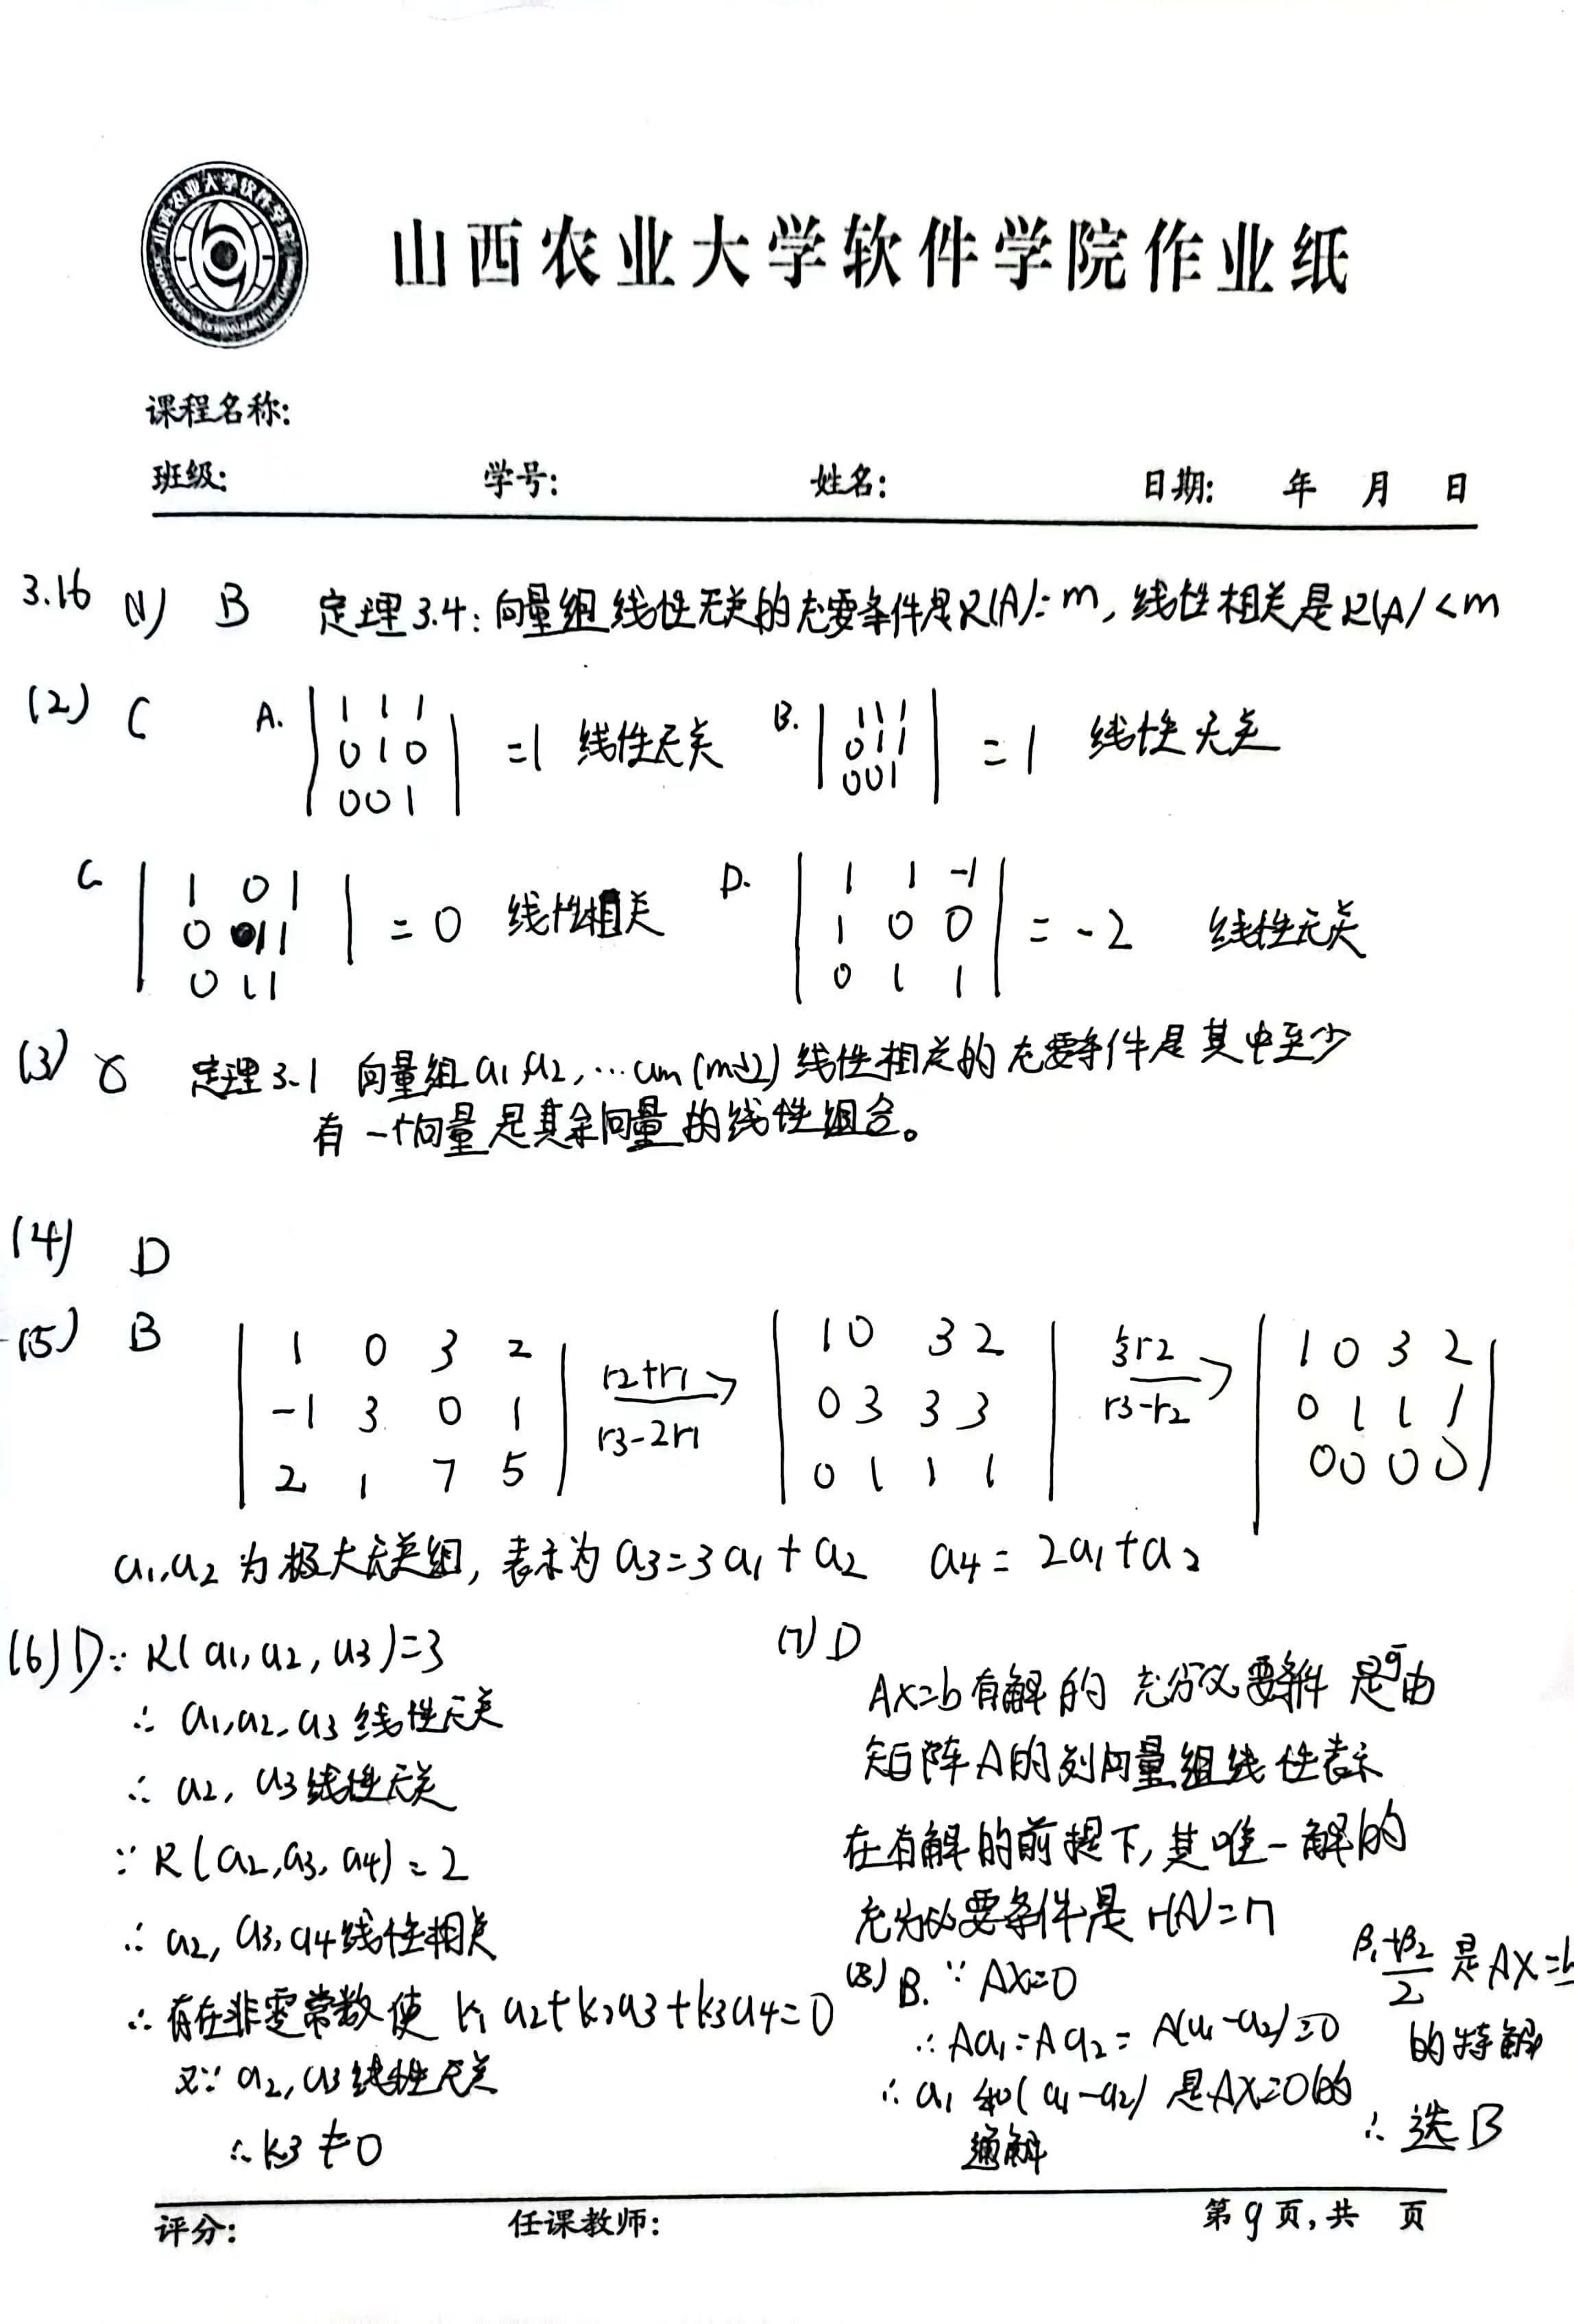 山西农业大学软件学院
山西农业大学软件学院作业纸
课程名称:
班级: 学号: 姓名: 日期: 年 月 日
3.16 (1) B 定理3.4:向量组线性无关的充要条件是R(A)=m,线性相关是R(A)<m
(2) C A. | 1 1 1 | B. | 1 1 1 |
| 0 1 0 | =1 线性无关 | 0 1 1 | =1 线性无关
| 0 0 1 | | 0 0 1 |
C. | 1 0 1 | D. | 1 1 -1 |
| 0 1 1 | =0 线性相关 | 1 0 0 | =-2 线性无关
| 0 1 1 | | 0 1 1 |
(3) 定理3.1 向量组a1,a2,…am(m≥2)线性相关的充要条件是其中至少
有一个向量是其余向量的线性组合。
(4) D
(5) B | 1 0 3 2 | r2+r1 | 1 0 3 2 | ⅓r2 | 1 0 3 2 |
| -1 3 0 1 | → | 0 3 3 3 | → | 0 1 1 1 |
| 2 1 7 5 | r3-2r1 | 0 1 1 1 | r3-r2 | 0 0 0 0 |
a1,a2为极大无关组,表示为a3=3a1+a2 a4=2a1+a2
(6) D ∵R(a1,a2,a3)=3
∴a1,a2,a3线性无关
∴a2,a3线性无关
∵R(a2,a3,a4)=2
∴a2,a3,a4线性相关
∴存在非零常数使 k1a2+k2a3+k3a4=0
又∵a2,a3线性无关
∴k3≠0
(7) D
Ax=b有解的充分必要条件是 由
矩阵A的列向量组线性表示
在有解的前提下,其唯一解的
充分必要条件是r(A)=n
(8) B. ∵AX=0
∴Aa1=Aa2=A(a1-a2)=0
∴a1和(a1-a2)是AX=0的
通解
(β1+β2)/2 是AX=b
的特解
∴选B
评分: 任课教师: 第9页,共 页